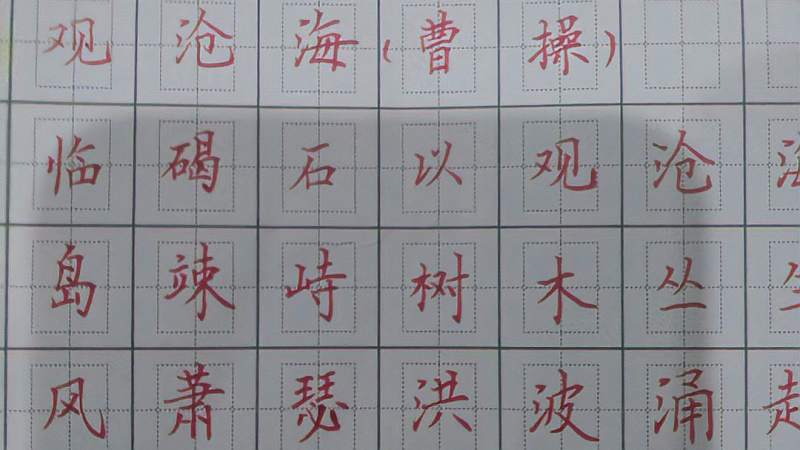 观沧海(曹操)
临碣石以观沧海
岛竦峙树木丛生
风萧瑟洪波涌起